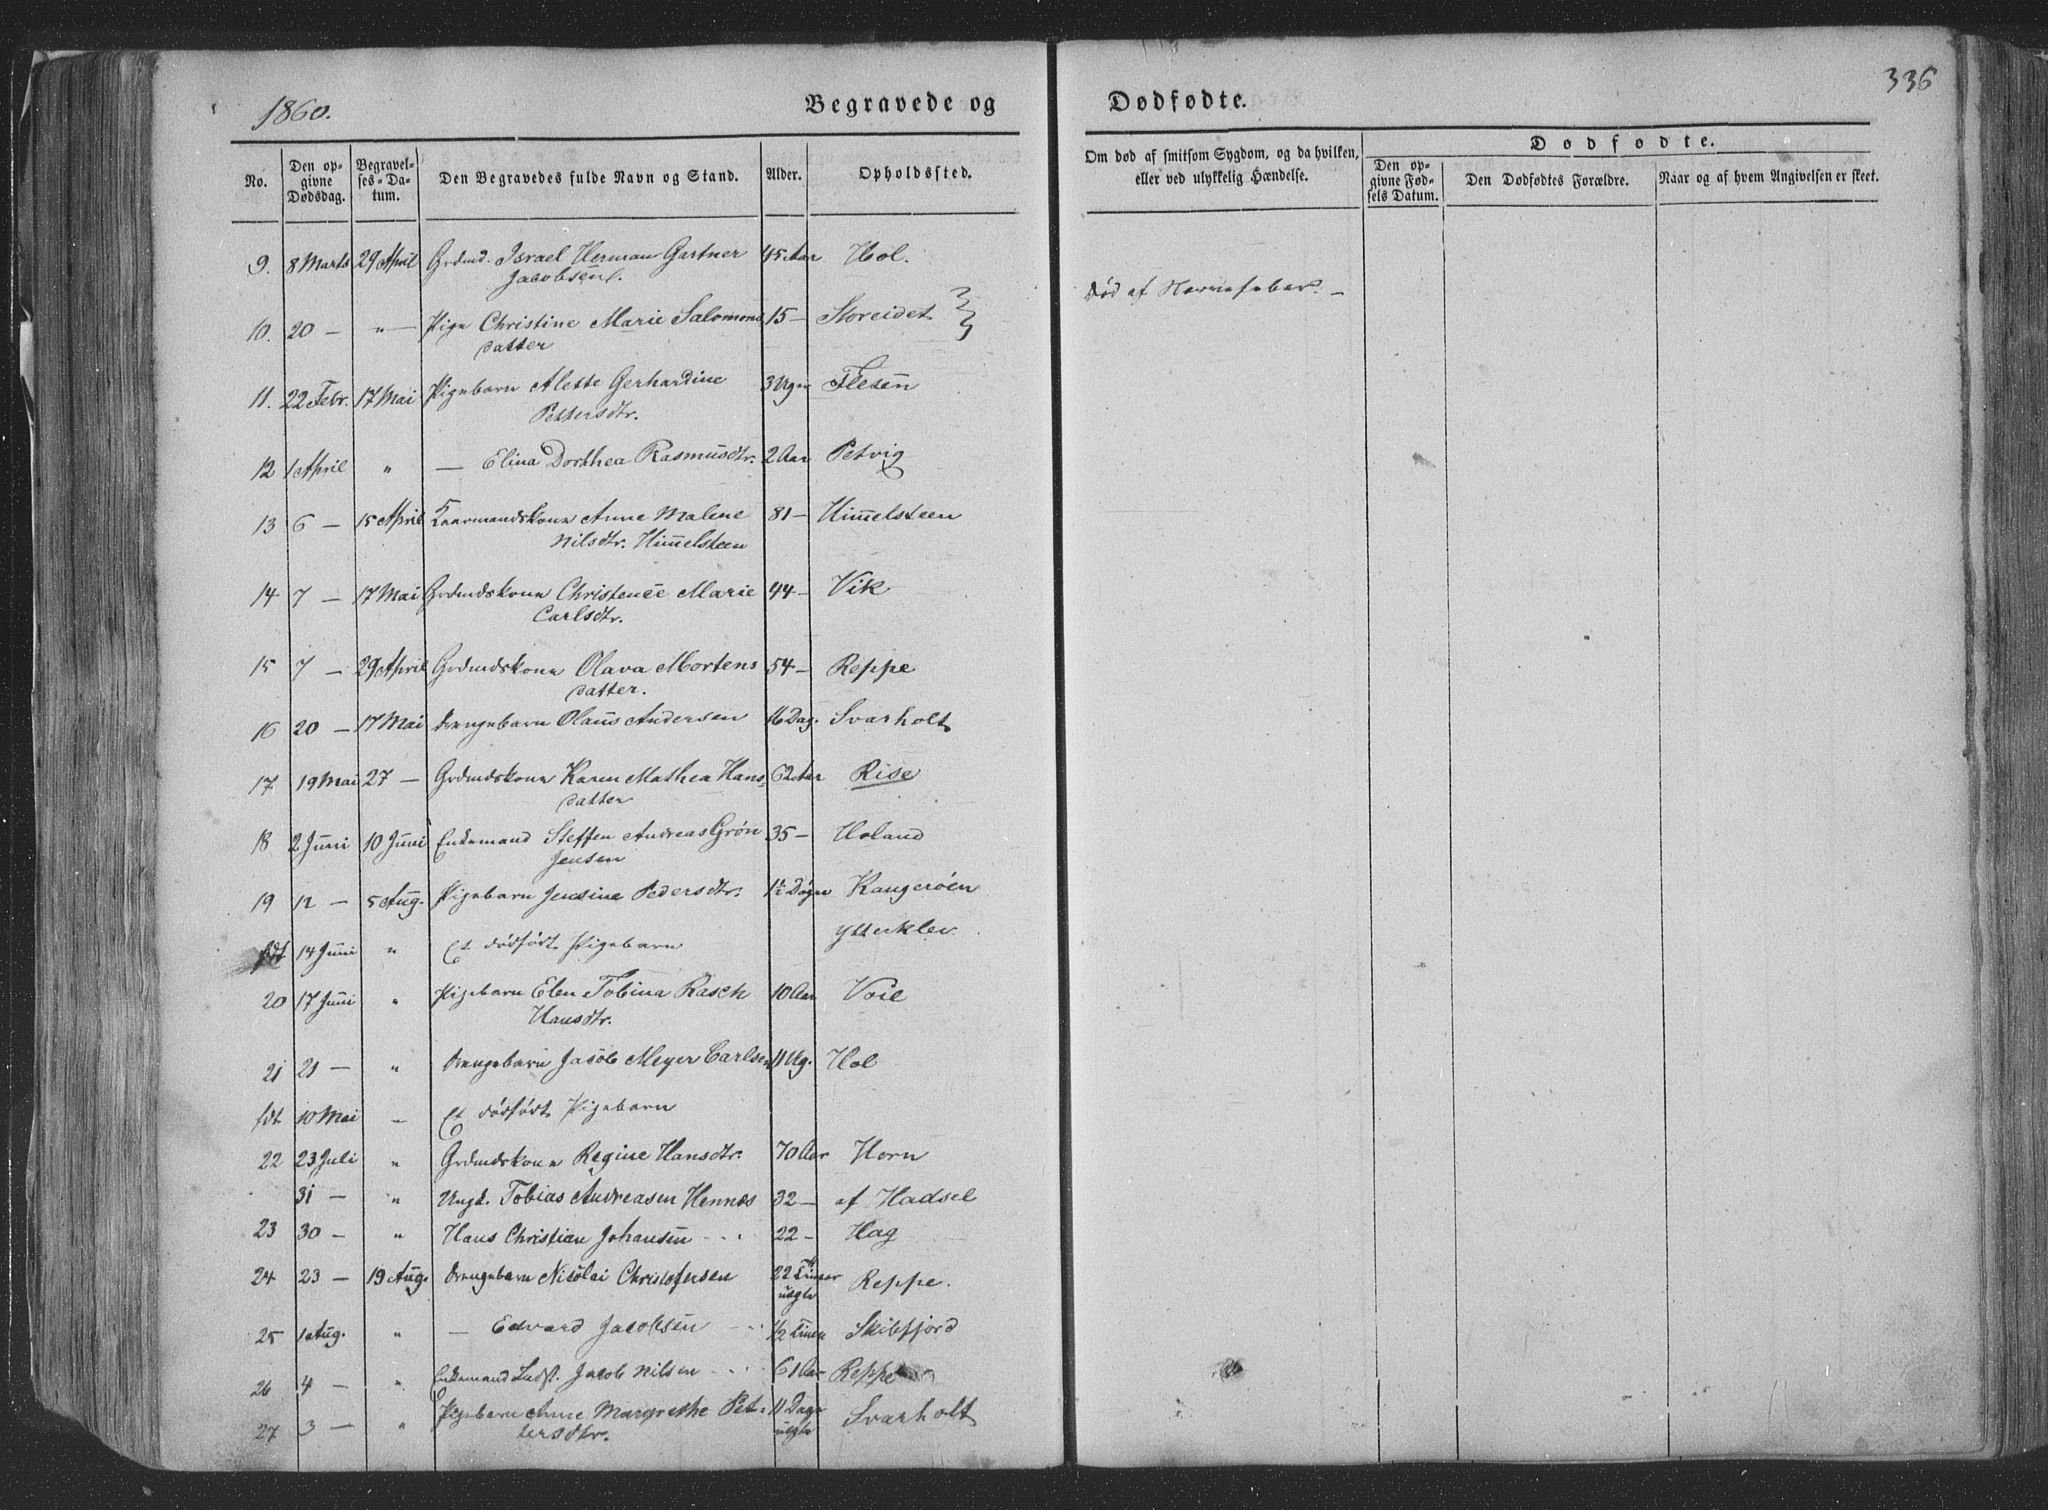 336
1860. Begravede og Dødfødte.
No. Den opgivne Dødsdag. Begravelses-Datum. Den Begravedes fulde Navn og Stand. Alder. Opholdssted. Om død af smitsom Sygdom, og da hvilken, eller ved ulykkelig Hændelse. Dødfødte. Den opgivne Fødsels Datum. Den Dødfødtes Forældre. Naar og af hvem Angivelsen er skeet.
9. 8 Marts 29 April Grdmd. Israel Herman Gartner 45 Aar Hol.
Jacobsen
Død af Nervefeber. –
10. 20 – " – Pige Christine Marie Salomons 15 – Storeidet
datter
11. 22 Febr. 17 Mai Pigebarn Alette Gerhardine 3 Uger Flesen
Pettersdtr.
12 1 April " — Elina Dorthea Rasmusdtr. 2 Aar Petvig
13 6 – 15 April Kaarmandskone Anne Malene 81 – Himelsteen
Nilsdtr. Himelsteen
14 7 – 17 Mai Grdmdskone Christense Marie 44 – Vik
Carlsdtr.
15 7 – 29 April Grdmdskone Olava Mortens 54 – Reppe
datter.
16 20 – 17 Mai Drengebarn Olaus Andersen 16 Dag. Svarholt
17 19 Mai 27 – Grdmdskone Karen Mathea Hans- 62 Aar Rise
datter
18 2 Juni 10 Juni Enkemand Steffen Andreas Grøn 35 – Holand
Jensen
19 12 – 5 Aug. Pigebarn Jensine Pedersdtr. 1½ Døgn Kangerøen
fdt 14 Juni " Et dødfødt Pigebarn Ytterklev
20 17 Juni " Pigebarn Elen Tobina Rasch 10 Aar Voie
Hansdtr.
21 21 – " Drengebarn Jacob Meyer Carlsen 11 Ug. Hol
fdt. 10 Mai – Et dødfødt Pigebarn
22 23 Juli " Grdmdskone Regine Hansdtr. 70 Aar Horn
31 – " Ungk. Tobias Andreasen Hennes 32 – af Hadsel
23 30 – " Hans Christian Johansen 22 – Hag
24 23 – 19 Aug. Drengebarn Nicolai Christofersen 22 Timer Reppe.
udøbt
25 1 Aug. " — Edvard Jacobsen ½ Time Skibfjord
26 4 – " Enkemand Indst. Jacob Nilsen 61 Aar Reppe
27 3 – " Pigebarn Anne Margrethe Pet- 11 Dage Svarholt
tersdtr.